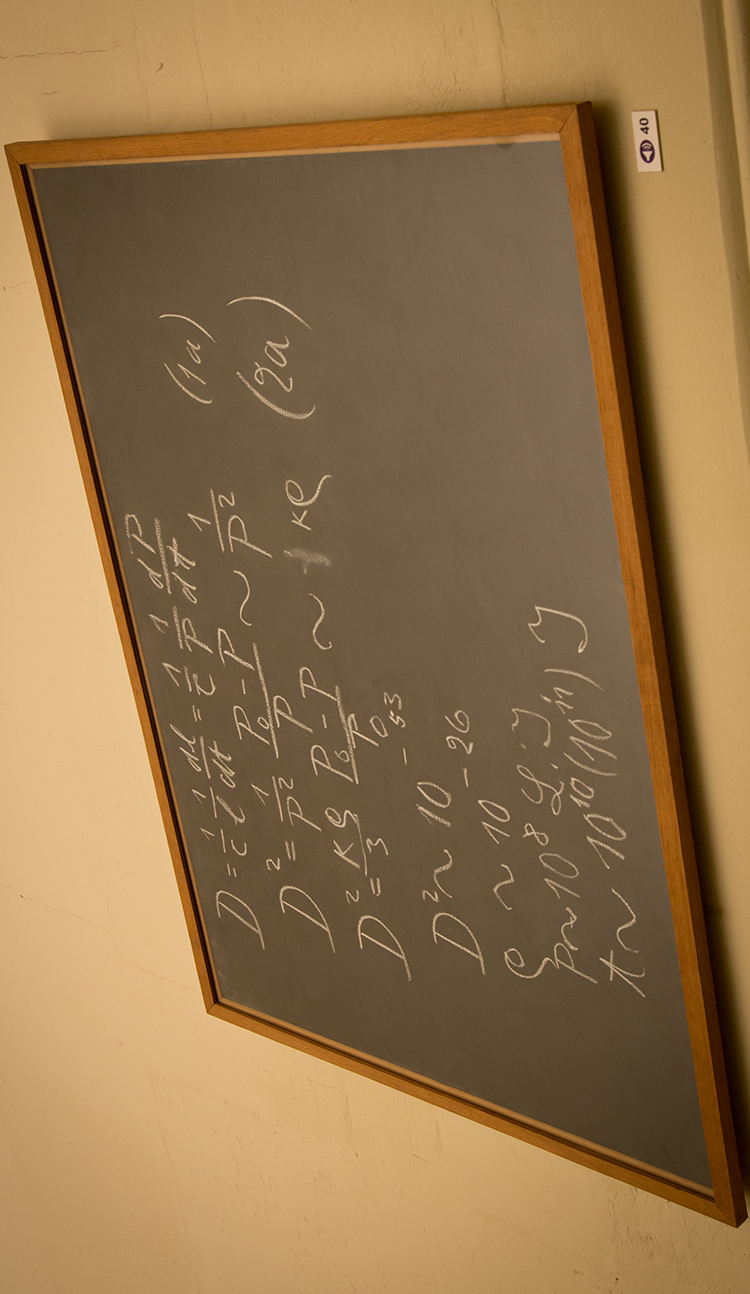 40
D = 1/c 1/l dl/dt = 1/c 1/P dP/dt
D² = 1/P² (P₀-P)/P ~ 1/P² (1a)
D² = κρ/3 (P₀-P)/P₀ ~ κρ (2a)
D² ~ 10⁻⁵³
ρ ~ 10⁻²⁶
P ~ 10⁸ L.J
t ~ 10¹⁰(10¹¹) J